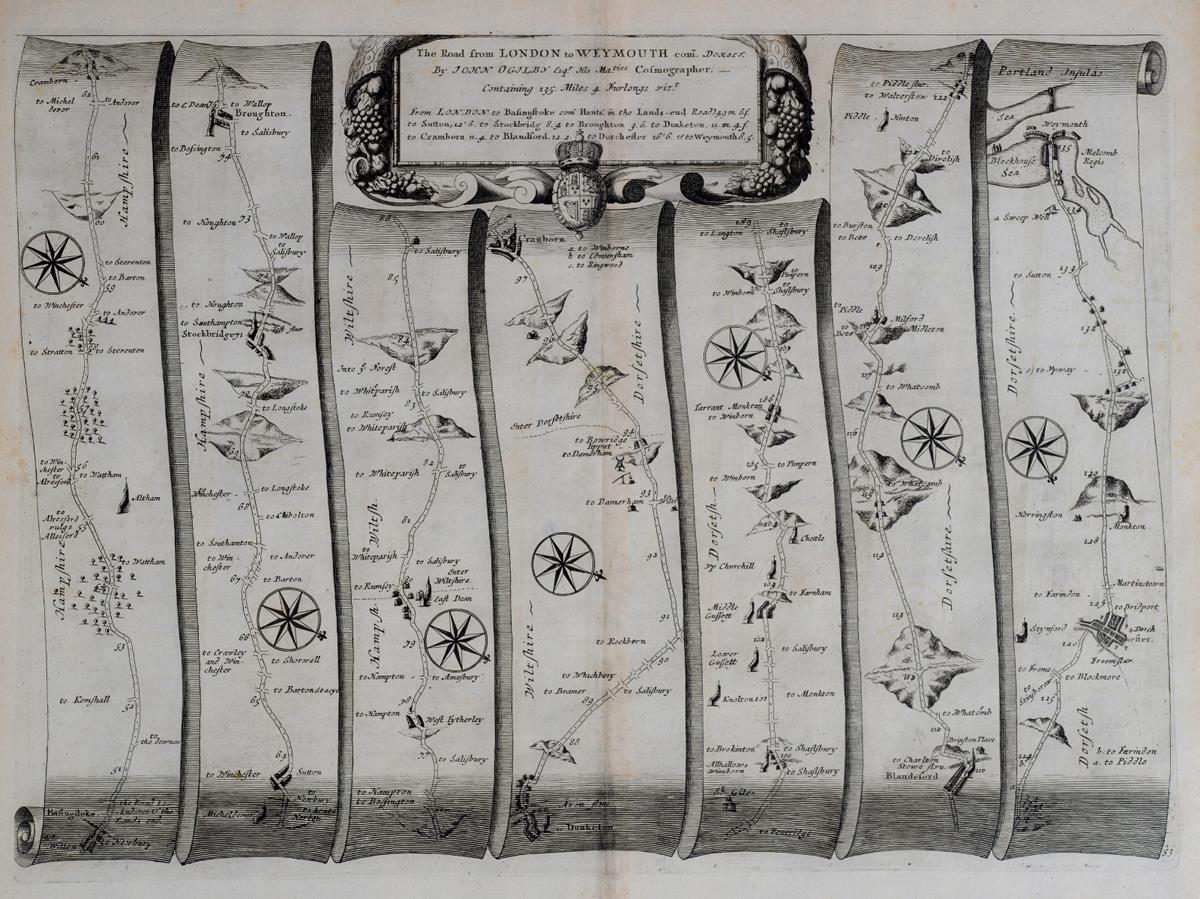 The Road from LONDON to WEYMOUTH com. Dorset.
By JOHN OGILBY Esqr. His Maties Cosmographer.
Containing 135 Miles 4 Furlongs vizt.
From LONDON to Basingstoke com Hants. in the Lands-end Road
to Sutton to Stockbridg 8.4 to Broughton 4.6. to Dunketon. 11.m.4f.
to Cramborn 11.4. to Blandford 12.2. to Dorchester 16'6. & to Weymouth 8.5.
Cramborn
62
to Michel
dever
to Andover
61
Hampshire
60
to Steventon
to Barton
59
to Winchester
to Andover
to Stratton
to Steventon
57
to Win-
chester
to
Alresford
56
to Waltham
Altham
to
Alresford
vulgo
Allesford
55
Hampshire
to Waltham
53
to Kemshall
52
to
the downes
51
the Road to
Andover & the
Lands end
Basingstoke
to
Wilton
to Newbury
to E. Dean
75
to Wallop
Broughton
to Salisbury
to Bossington
74
to Houghton
73
to Wallop
to
Salisbury
72
to Houghton
to Southampton
Stockbridge
71
flur
Hampshire
to Longstoke
70
69
to
Winchester
to Longstoke
68
to Chibolton
to Southamton
to Win-
chester
to Andover
67
to Barton
66
to Crawley
and Win-
chester
to Shorwell
to Barton Stacye
65
63
to Winchester
Sutton
to
Newbury
Micheldever
to
Norton
88
to Salisbury
Wiltshire
85
84
Into ye Forest
to Whitparish
83
to Salisbury
to Rumsey
to Whiteparish
to Whiteparish
82
to
Salisbury
Wiltsh.
81
to
Whiteparish
to Salisbury
Enter
Wiltshire
to Rumsey
East Dean
Hampsh.
79
to Hampton
to Amesbury
78
to Hampton
West Tytherley
77
to Salisbury
to Hampton
to Bossington
98
Cranborn
a. to Winborne
b. to Edmunsham
c. to Ringwood
97
96
Dorsetshire
95
Enter Dorsetshire
94
to Bowridge
to Damerham
93
to Damerham
92
91
Wiltshire
to Rockborn
90
to Whichbery
to Bramer
89
to Salisbury
88
Avon flu.
Dunketon
109
to Langton
to
Shaftsbury
to
Pimpern
to Winborn
to
Shaftsbury
Tarrant Monkton
106
to Winborn
105
to Pimpern
to Winborn
Dorsetsh.
104
Chettle
up Churchill
103
to Farnham
Middle
Gussett
102
Lower
Gussett
to Salisbury
Knolton
101
to Monkton
to Brokinton
to Shaftsbury
100
Allhallows
Wimborn
to Shaftsbury
St. Giles
to Pentridge
to Piddle flur.
to Walterston
122
Piddle
Hinton
to
Divelish
120
to Burston
to Bere
to Develish
119
to
Piddle
Milford
to
Bere
to Midleton
117
to Whatcomb
116
to Whatcomb
115
114
Dorsetshire
113
112
to Whatcomb
112
Brinston Place
to Charlton
Stoure flu.
Blandeford
110
Portland Insulas
Sea
Weymouth
135
Melcomb
Regis
Blockhouse
Sea
134
a Sweep Well
to Sutton
133
Dorsetshire
to Upway
132
129
Herringston
Monkton
128
Martinstown
to Farindon
125
to Bridport
Stynford
Dorch
ester.
Froom flur
to Frome
to Blockmore
125
Dorsetsh
b. to Farindon
a. to Piddle
124
53